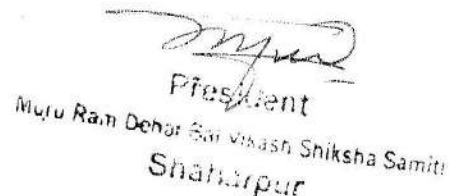 President
Muru Ram Dehar Bal Vikash Shiksha Samiti
Shaharpur